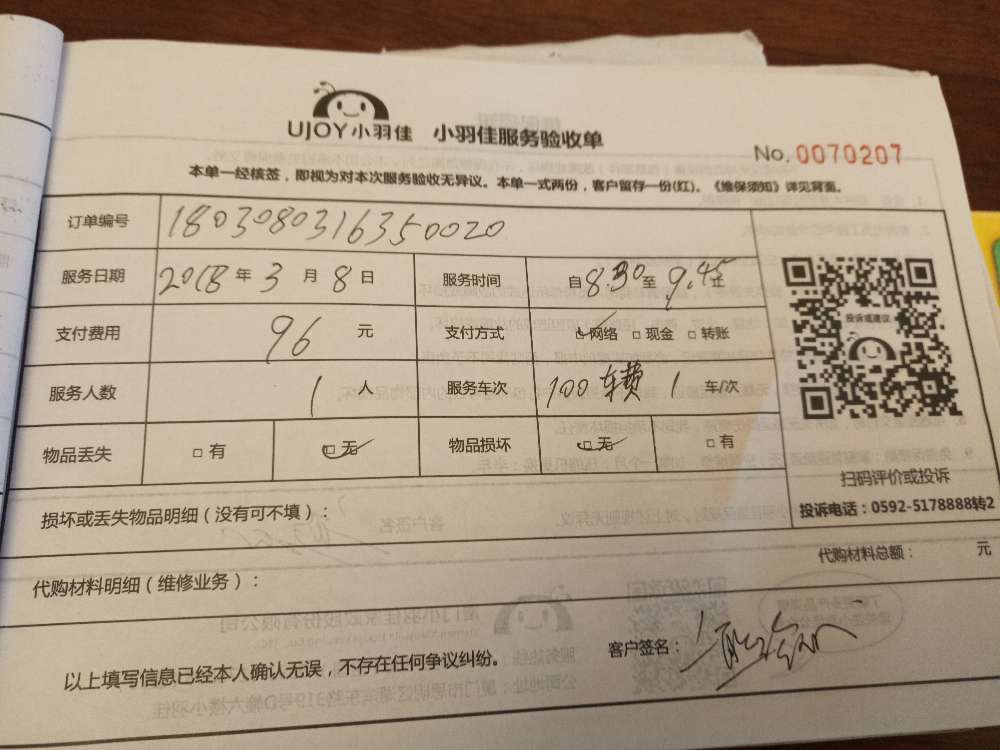 UJOY小羽佳 小羽佳服务验收单
No. 0070207
本单一经核签，即视为对本次服务验收无异议。本单一式两份，客户留存一份(红)。《维保须知》详见背面。
订单编号 1803080316350020
服务日期 2018年3月8日 服务时间 自8.30至9.45止
支付费用 96 元 支付方式 ☑网络 □现金 □转账
投诉或建议
服务人数 1 人 服务车次 100车费 1 车/次
物品丢失 □有 ☑无 物品损坏 ☑无 □有
扫码评价或投诉
损坏或丢失物品明细（没有可不填）：
投诉电话：0592-5178888转2
代购材料明细（维修业务）： 代购材料总额： 元
以上填写信息已经本人确认无误，不存在任何争议纠纷。 客户签名：